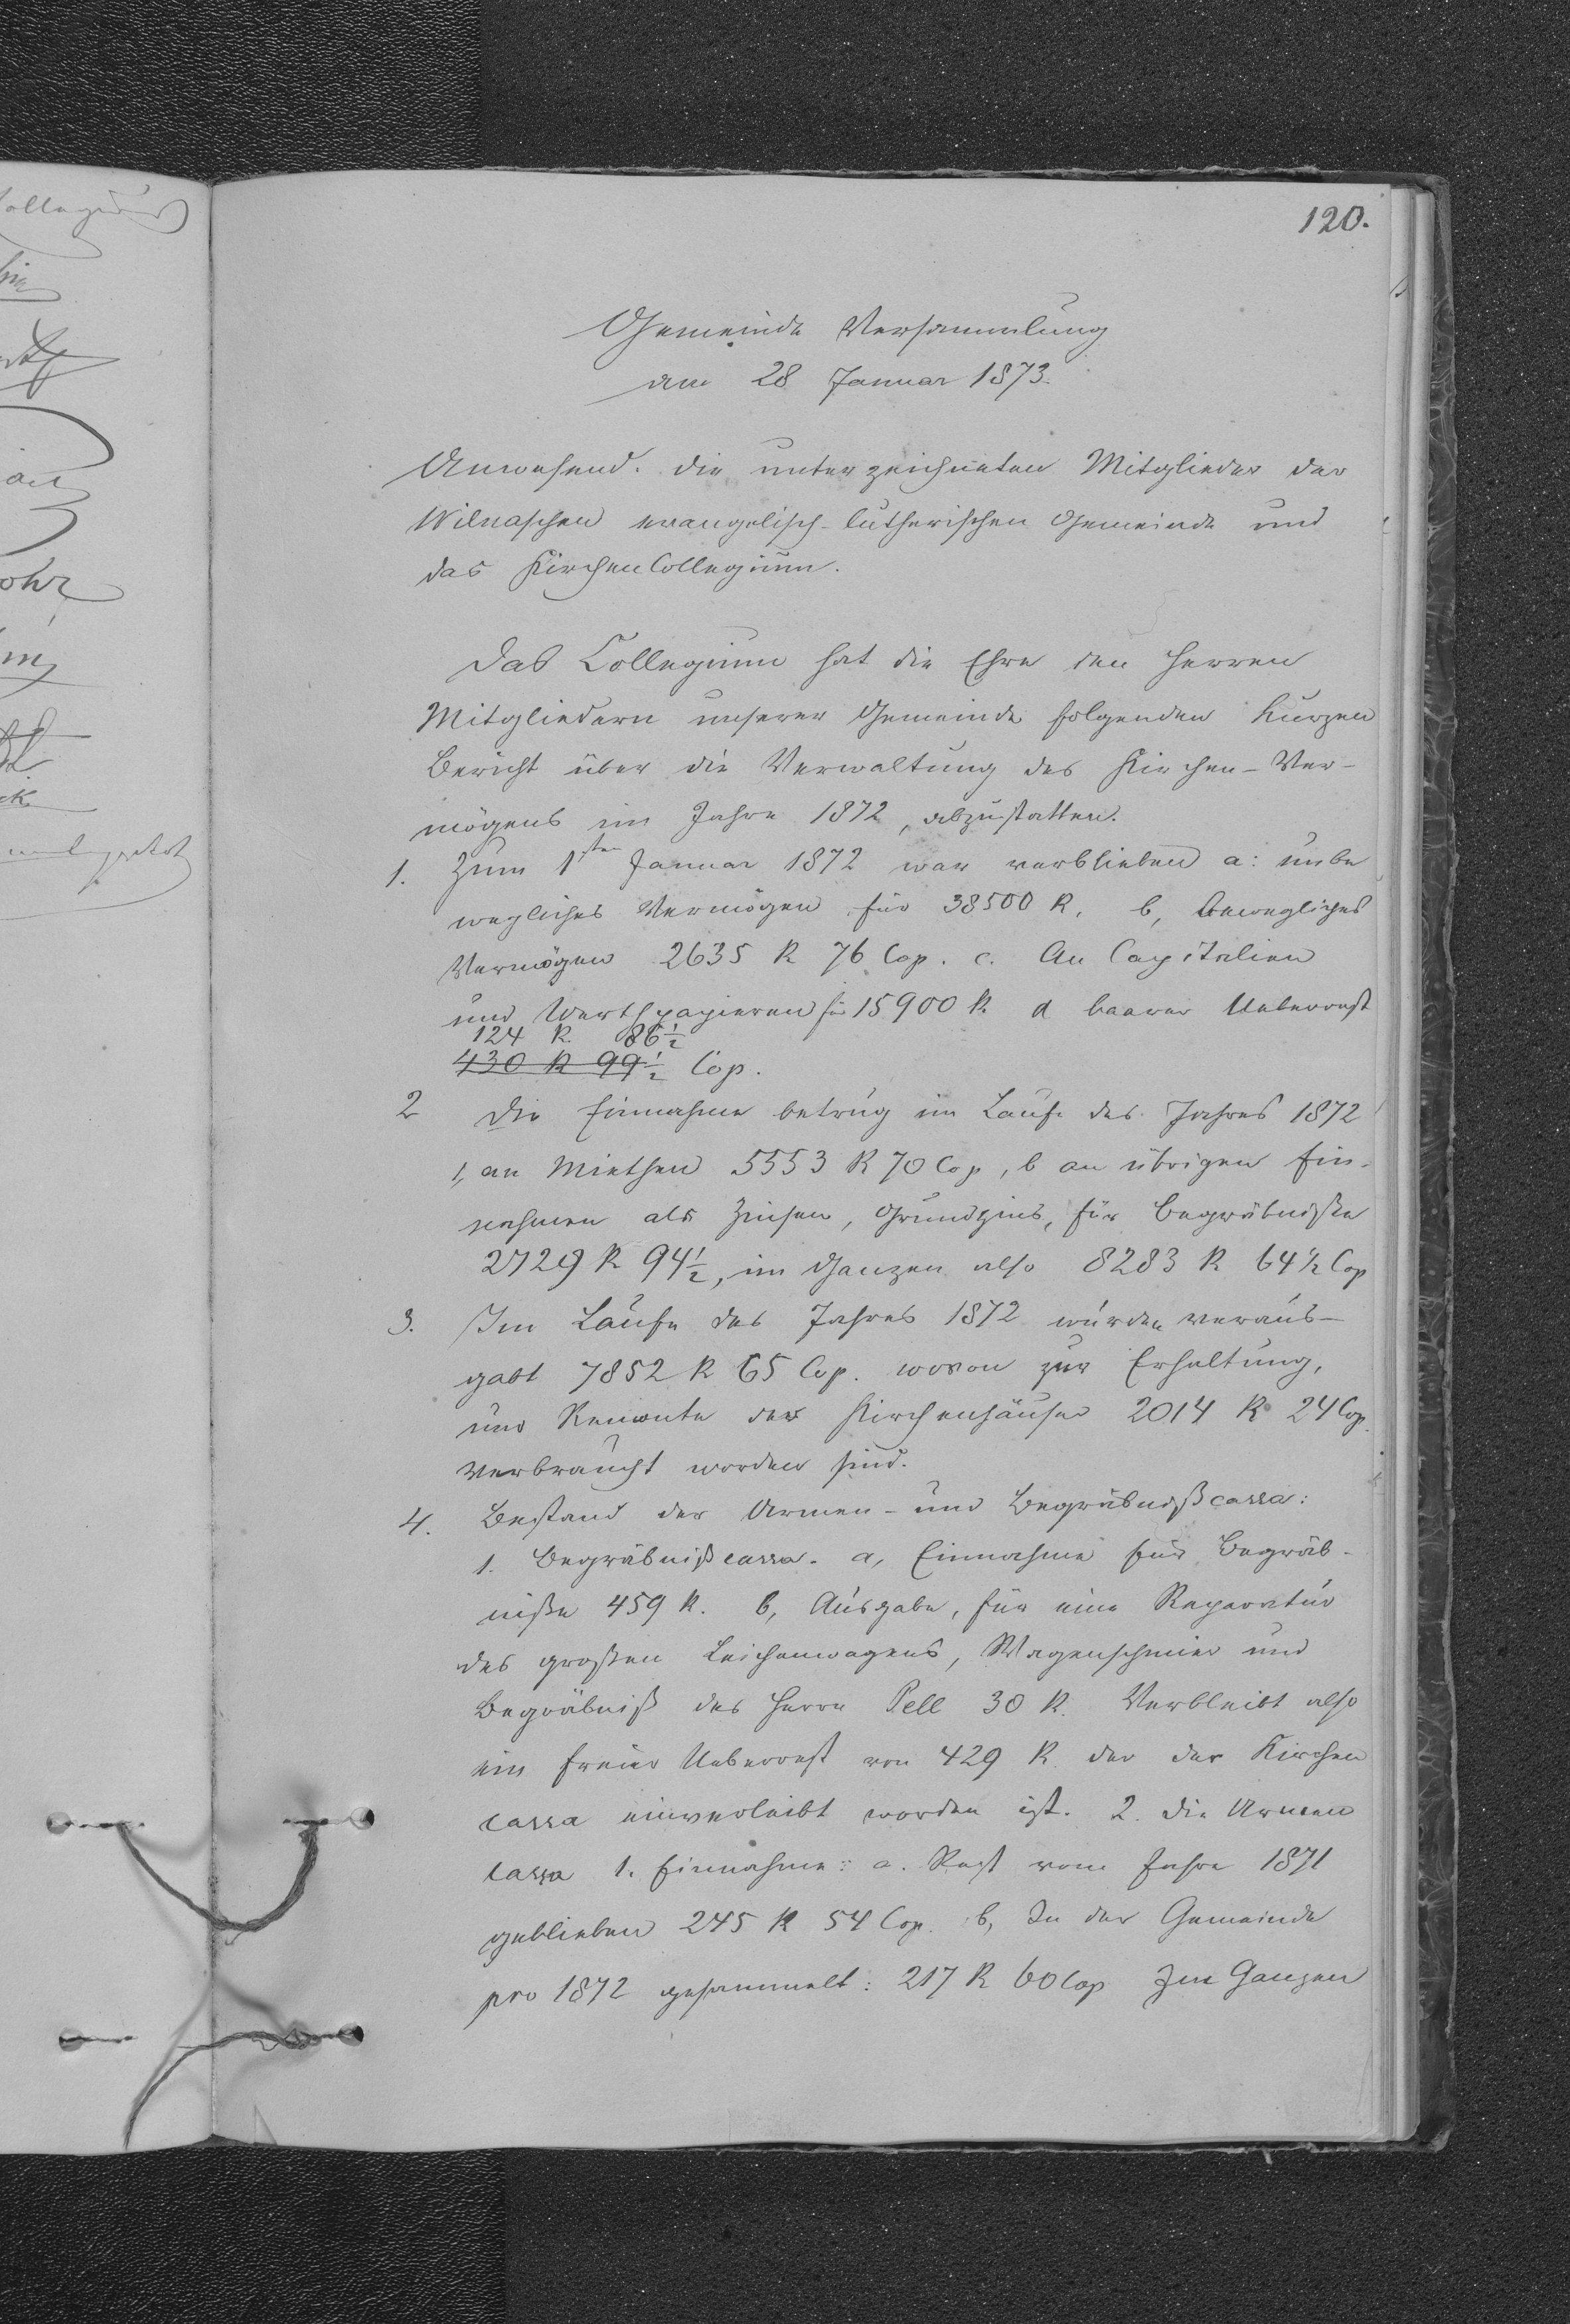 120.
Gemeinde Versammlung
am 28 Januar 1873.
Anwesend. die unterzeichneten Mitglieder der
Wilnaschen evangelisch-lutherischen Gemeinde und
das Kirchen Collegium.
Das Collegium hat die Ehre den Herren
Mitgliedern unserer Gemeinde folgenden kurzen
Bericht über die Verwaltung des Kirchen-Ver-
mögens im Jahre 1872, abzustatten.
1. Zum 1sten Januar 1872 war verblieben a: unbe
wegliches Vermögen für 38500 R. b, bewegliches
Vermögen 2635 R 76 Cop. c. An Capitalien
und Werthpapieren für 15900 R. d baarer Ueberrest
124 R. 86½
430 R 99½ Cop.
2 Die Einnahme betrug im Laufe des Jahres 1872
1, an Miethen 5553 R 70 Cop, b an übrigen Ein-
nahmen als Zinsen, Grundzins, für Begräbniße
2729 R 94½, im Ganzen also 8283 R 64½ Cop
3. Im Laufe des Jahres 1872 wurden veraus-
gabt 7852 R 65 Cop. wovon zur Erhaltung,
und Remonte der Kirchenhäuser 2014 R 24 Cop.
verbraucht worden sind.
4. Bestand der Armen- und Begräbnißcassa:
1. Begräbnißcassa. a, Einnahme für Begräb-
niße 459 R. b, Ausgabe, für eine Reparatur
des großen Leichenwagens, Wagenschmier und
Begräbniß des Herrn Pell 30 R. Verbleibt also
ein freier Ueberrest von 429 R. der der Kirchen
cassa einverleibt worden ist. 2. Die Armen
cassa 1. Einnahme: a. Rest vom Jahre 1871
geblieben 245 R 54 Cop. b, In der Gemeinde
pro 1872 gesammelt: 217 R 60 Cop Im Ganzen